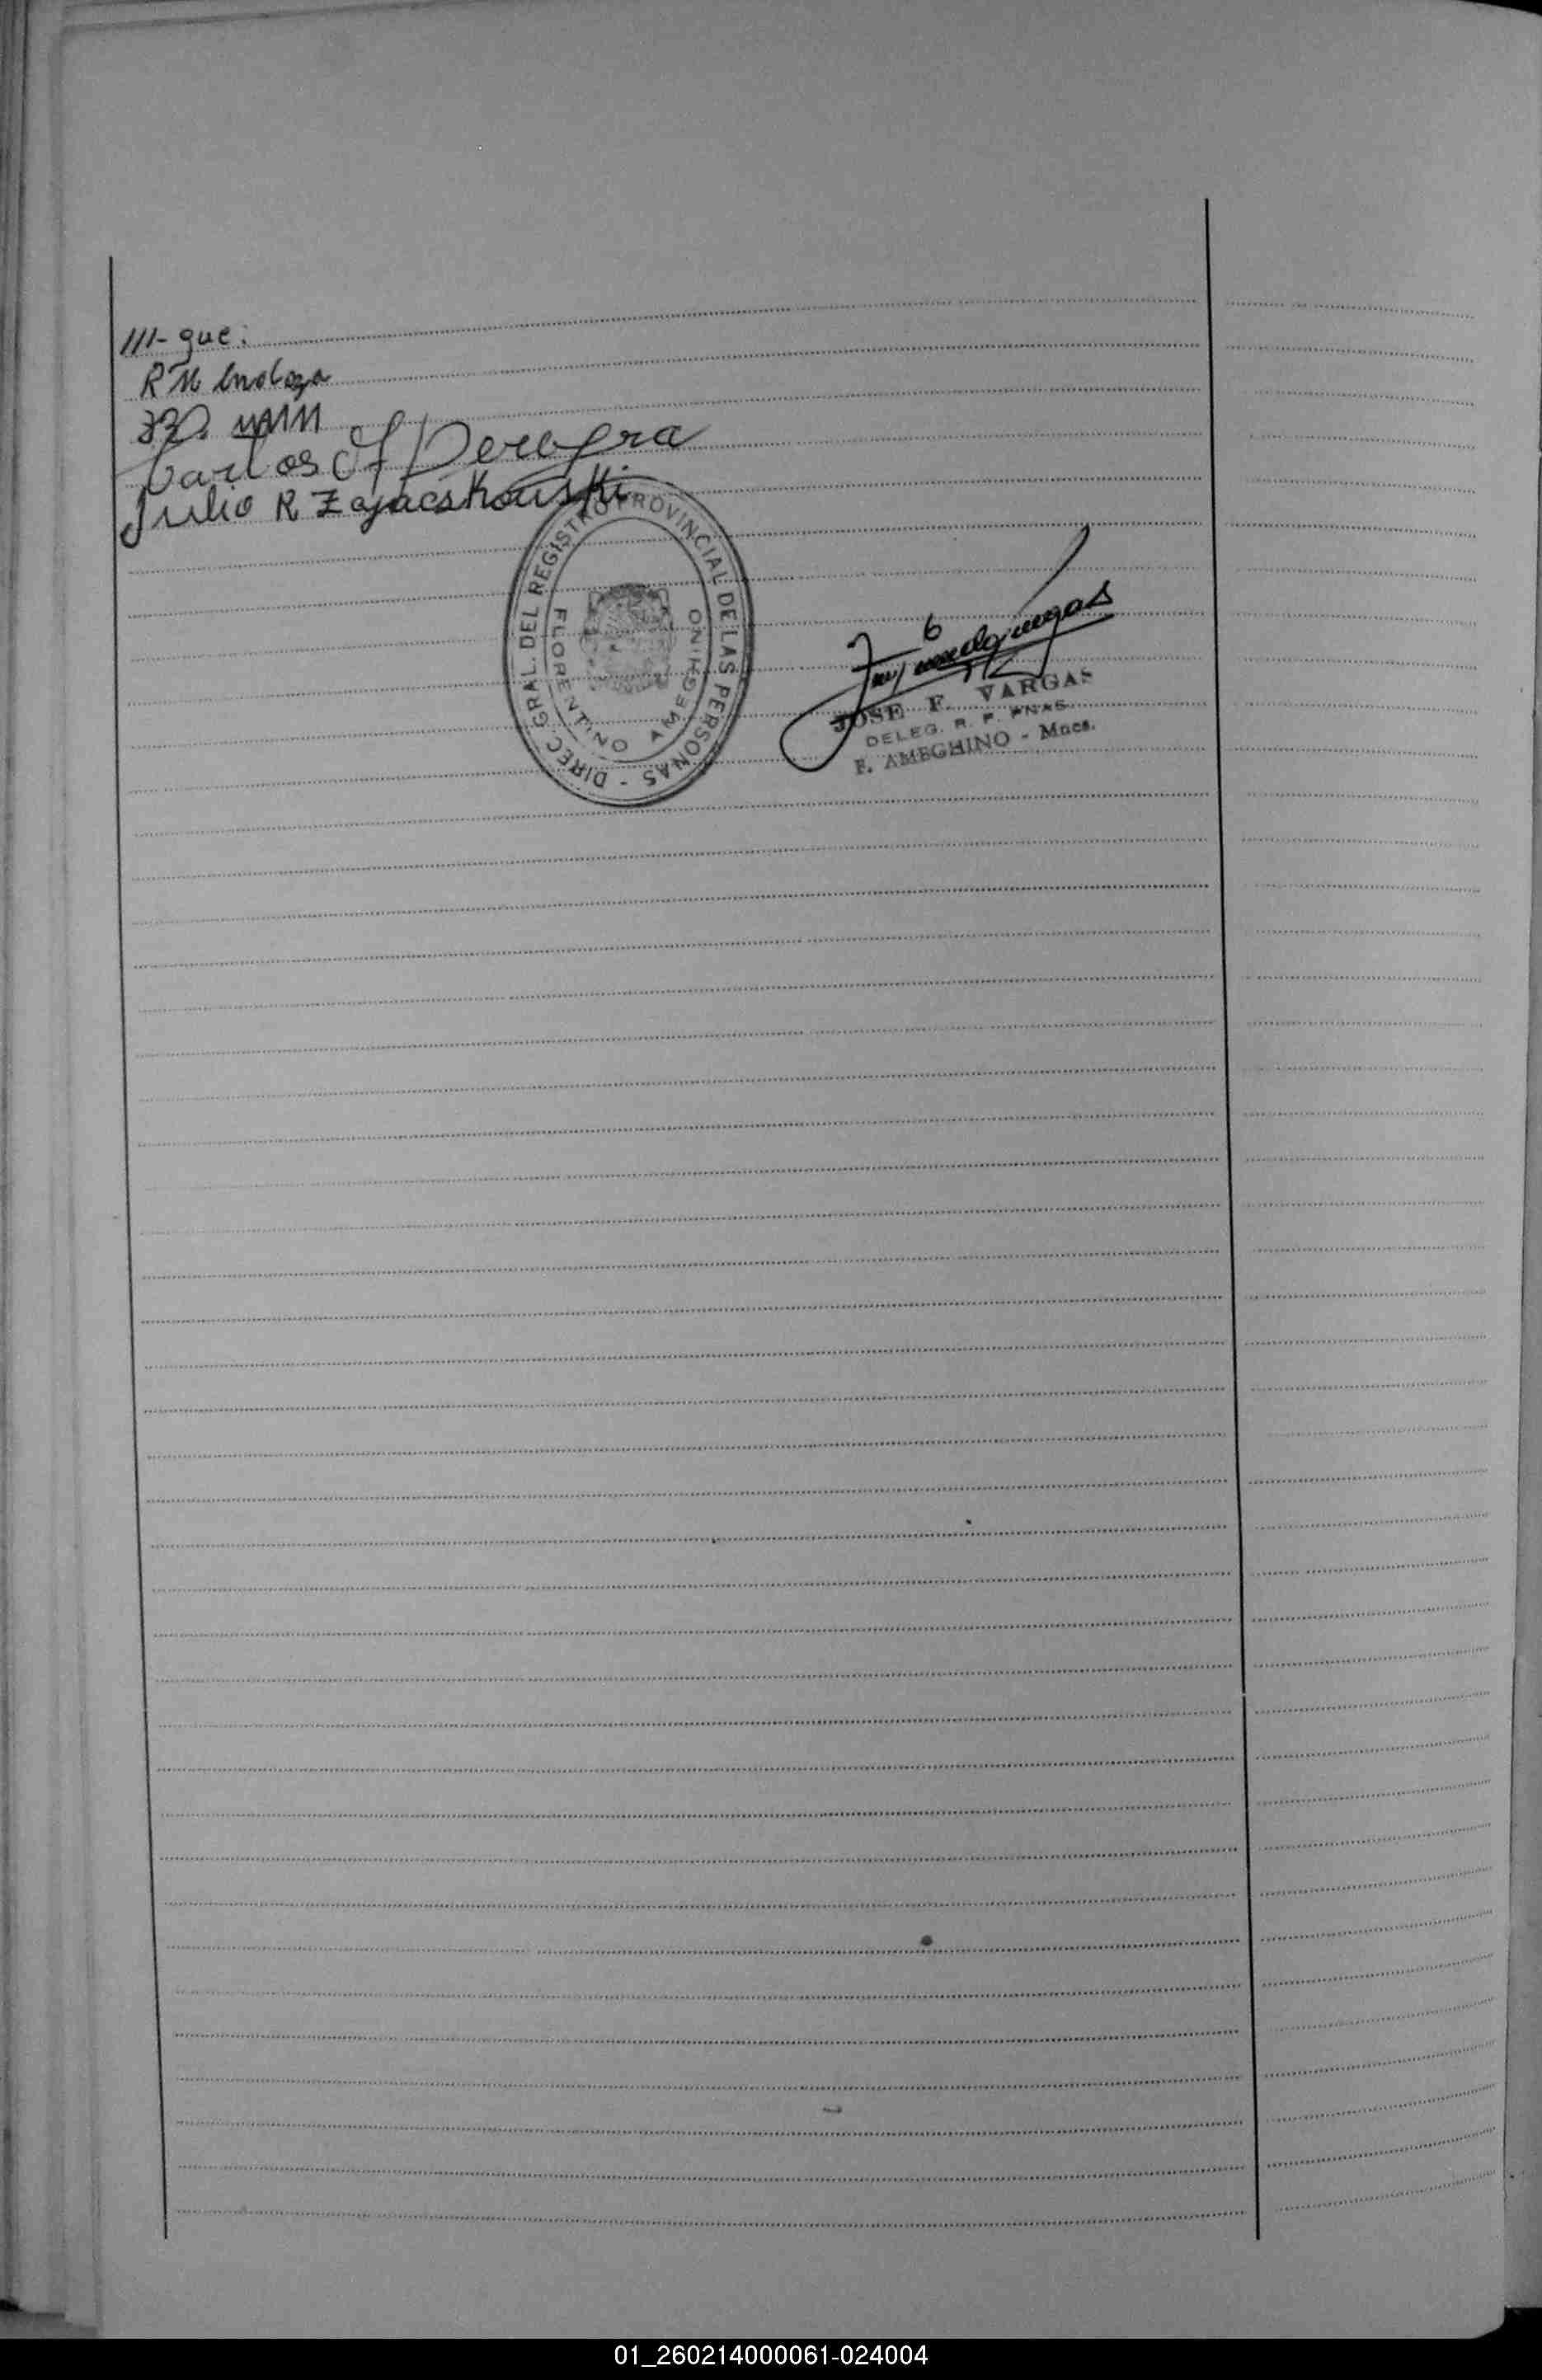 ///- que:
R Mendoza
Carlos A Pereyra
Julio R Zajacskouski
DIREC. GRAL. DEL REGISTRO PROVINCIAL DE LAS PERSONAS -
FLORENTINO AMEGHINO
JOSE F. VARGAS
DELEG. R. P. PNAS.
F. AMEGHINO - Mnes.
01_260214000061-024004